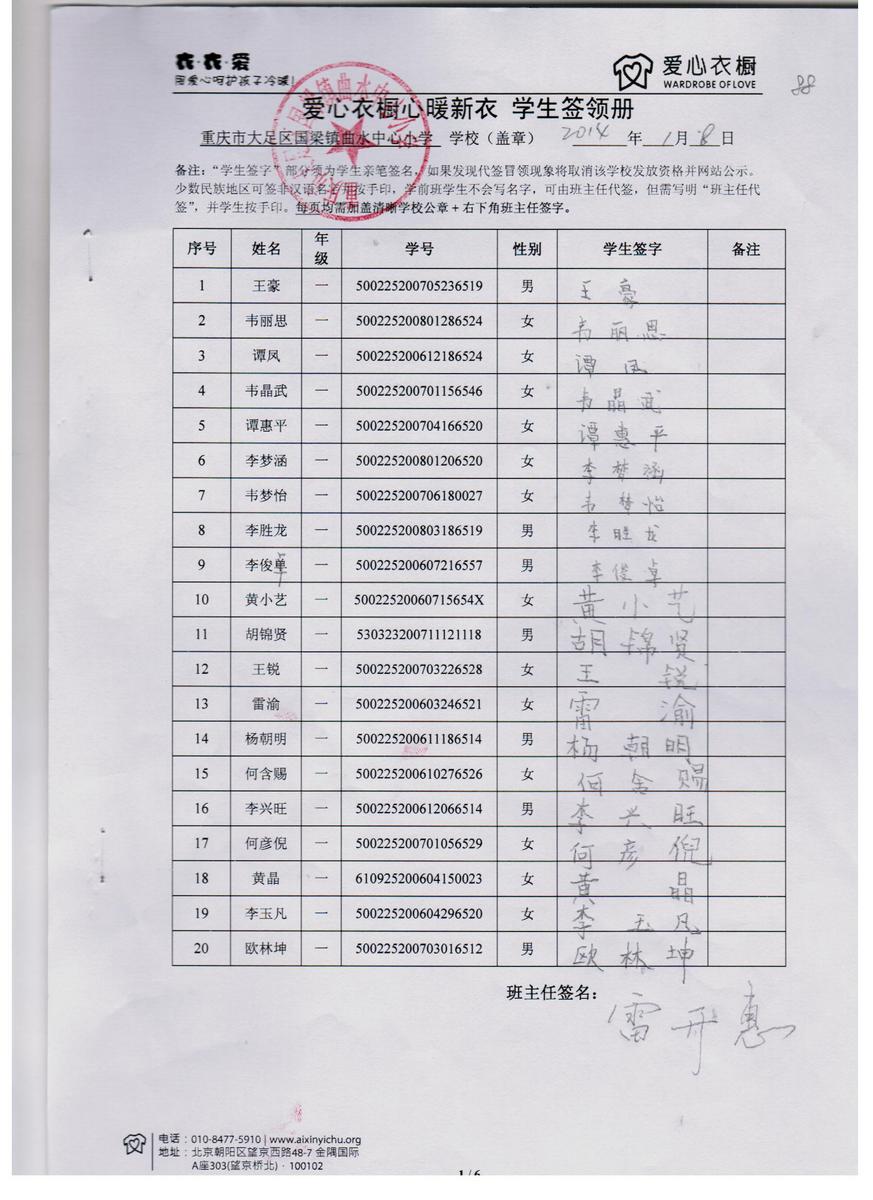 衣·衣·爱
用爱心呵护孩子冷暖!
爱心衣橱
WARDROBE OF LOVE
88
爱心衣橱心暖新衣 学生签领册
重庆市大足区国梁镇曲水中心小学 学校（盖章） 2014 年 1 月 8 日
备注：“学生签字”部分须为学生亲笔签名，如果发现代签冒领现象将取消该学校发放资格并网站公示。
少数民族地区可签非汉语名字并按手印，学前班学生不会写名字，可由班主任代签，但需写明“班主任代
签”，并学生按手印。每页均需加盖清晰学校公章+右下角班主任签字。
序号 姓名 年级 学号 性别 学生签字 备注
1 王豪 一 500225200705236519 男 王豪
2 韦丽思 一 500225200801286524 女 韦丽思
3 谭凤 一 500225200612186524 女 谭凤
4 韦晶武 一 500225200701156546 女 韦晶武
5 谭惠平 一 500225200704166520 女 谭惠平
6 李梦涵 一 500225200801206520 女 李梦涵
7 韦梦怡 一 500225200706180027 女 韦梦怡
8 李胜龙 一 500225200803186519 男 李胜龙
9 李俊卓 一 500225200607216557 男 李俊卓
10 黄小艺 一 50022520060715654X 女 黄小艺
11 胡锦贤 一 530323200711121118 男 胡锦贤
12 王锐 一 500225200703226528 女 王锐
13 雷渝 一 500225200603246521 女 雷渝
14 杨朝明 一 500225200611186514 男 杨朝明
15 何含赐 一 500225200610276526 女 何含赐
16 李兴旺 一 500225200612066514 男 李兴旺
17 何彦倪 一 500225200701056529 女 何彦倪
18 黄晶 一 610925200604150023 女 黄晶
19 李玉凡 一 500225200604296520 女 李玉凡
20 欧林坤 一 500225200703016512 男 欧林坤
班主任签名：雷开惠
电话：010-8477-5910 | www.aixinyichu.org
地址：北京朝阳区望京西路48-7 金隅国际
A座303(望京桥北)·100102
1 / 6